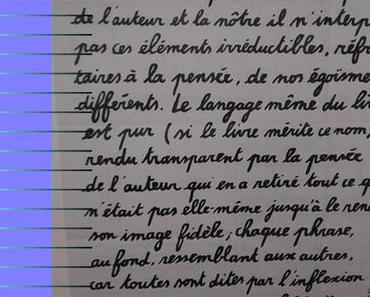 de l'auteur et la nôtre il n'interp
pas ces éléments irréductibles, réfr
taires à la pensée, de nos égoïsme
différents. Le langage même du li
est pur (si le livre mérite ce nom,
rendu transparent par la pensée
de l'auteur qui en a retiré tout ce q
n'était pas elle-même jusqu'à le ren
son image fidèle; chaque phrase,
au fond, ressemblant aux autres,
car toutes sont dites par l'inflexion